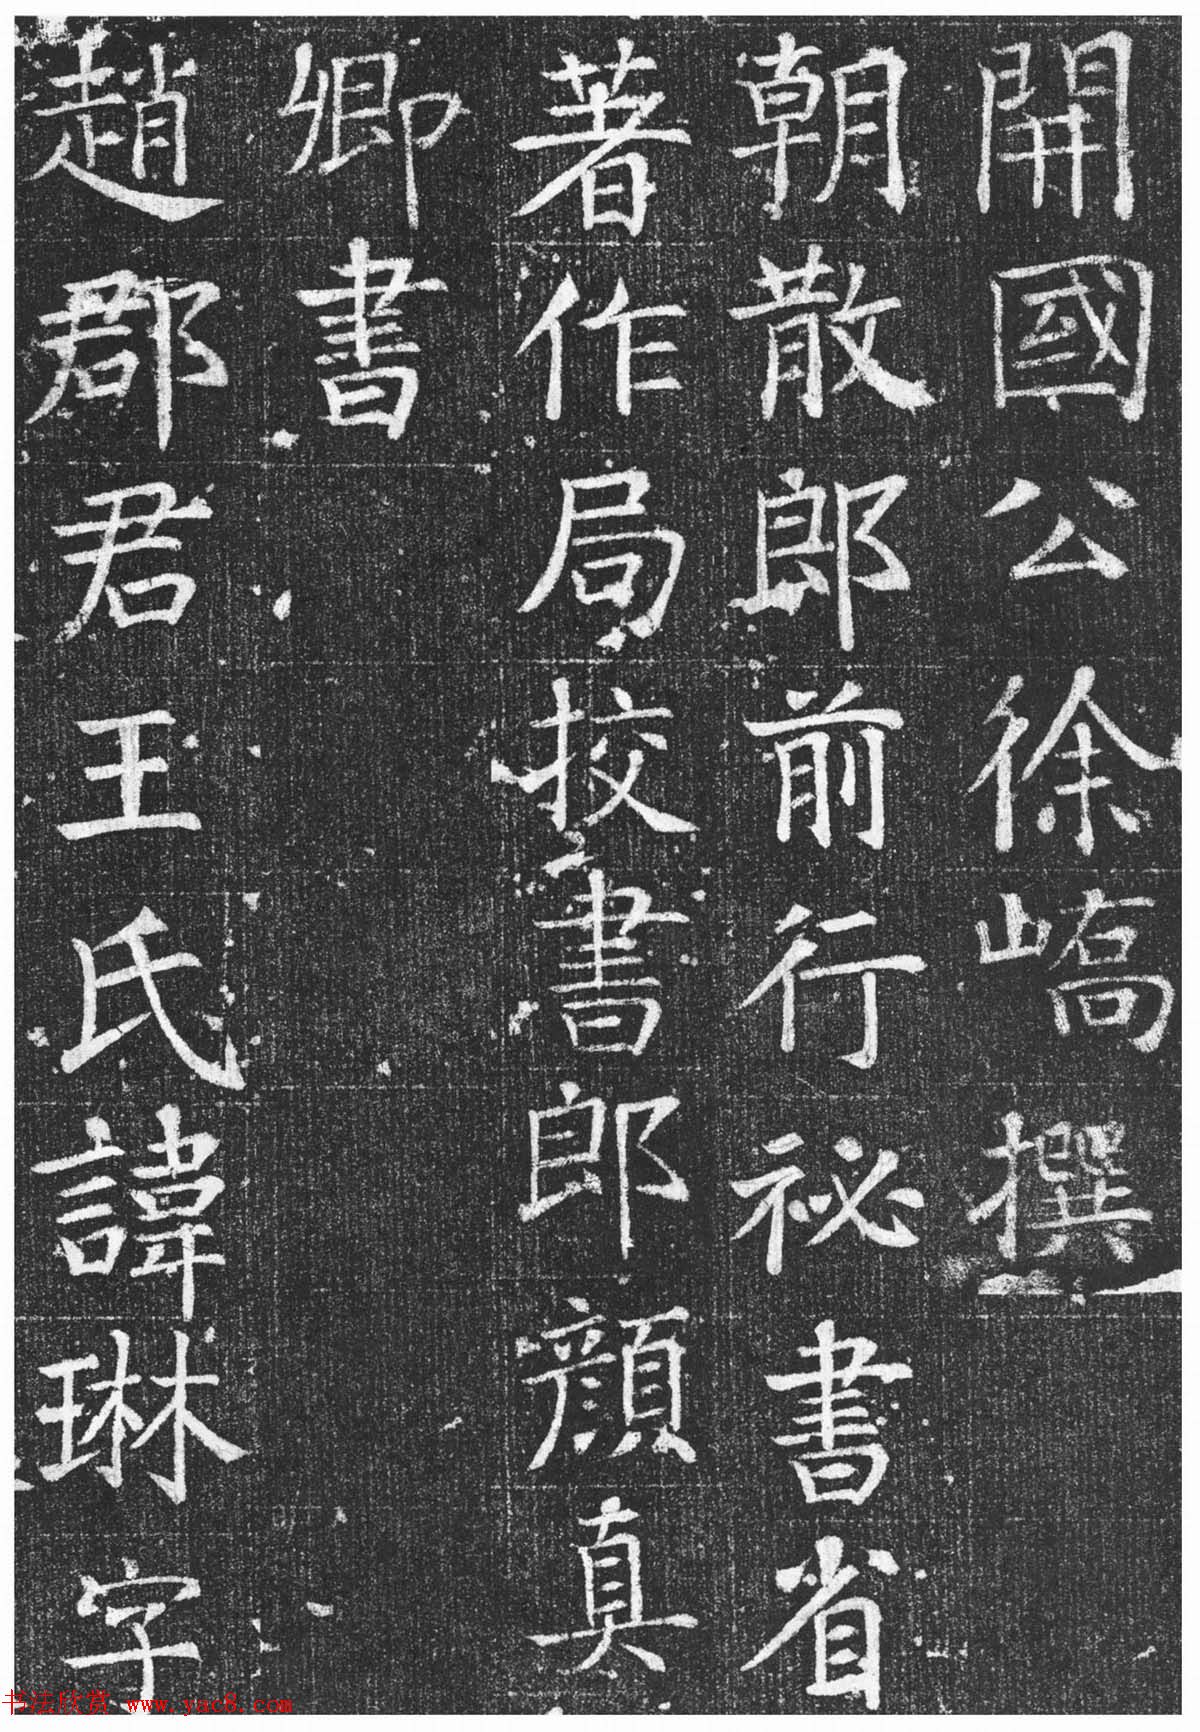 開國公徐嶠撰
朝散郎前行祕書省
著作局挍書郎顏真
卿書
趙郡君王氏諱琳字
书法欣赏 www.yac8.com